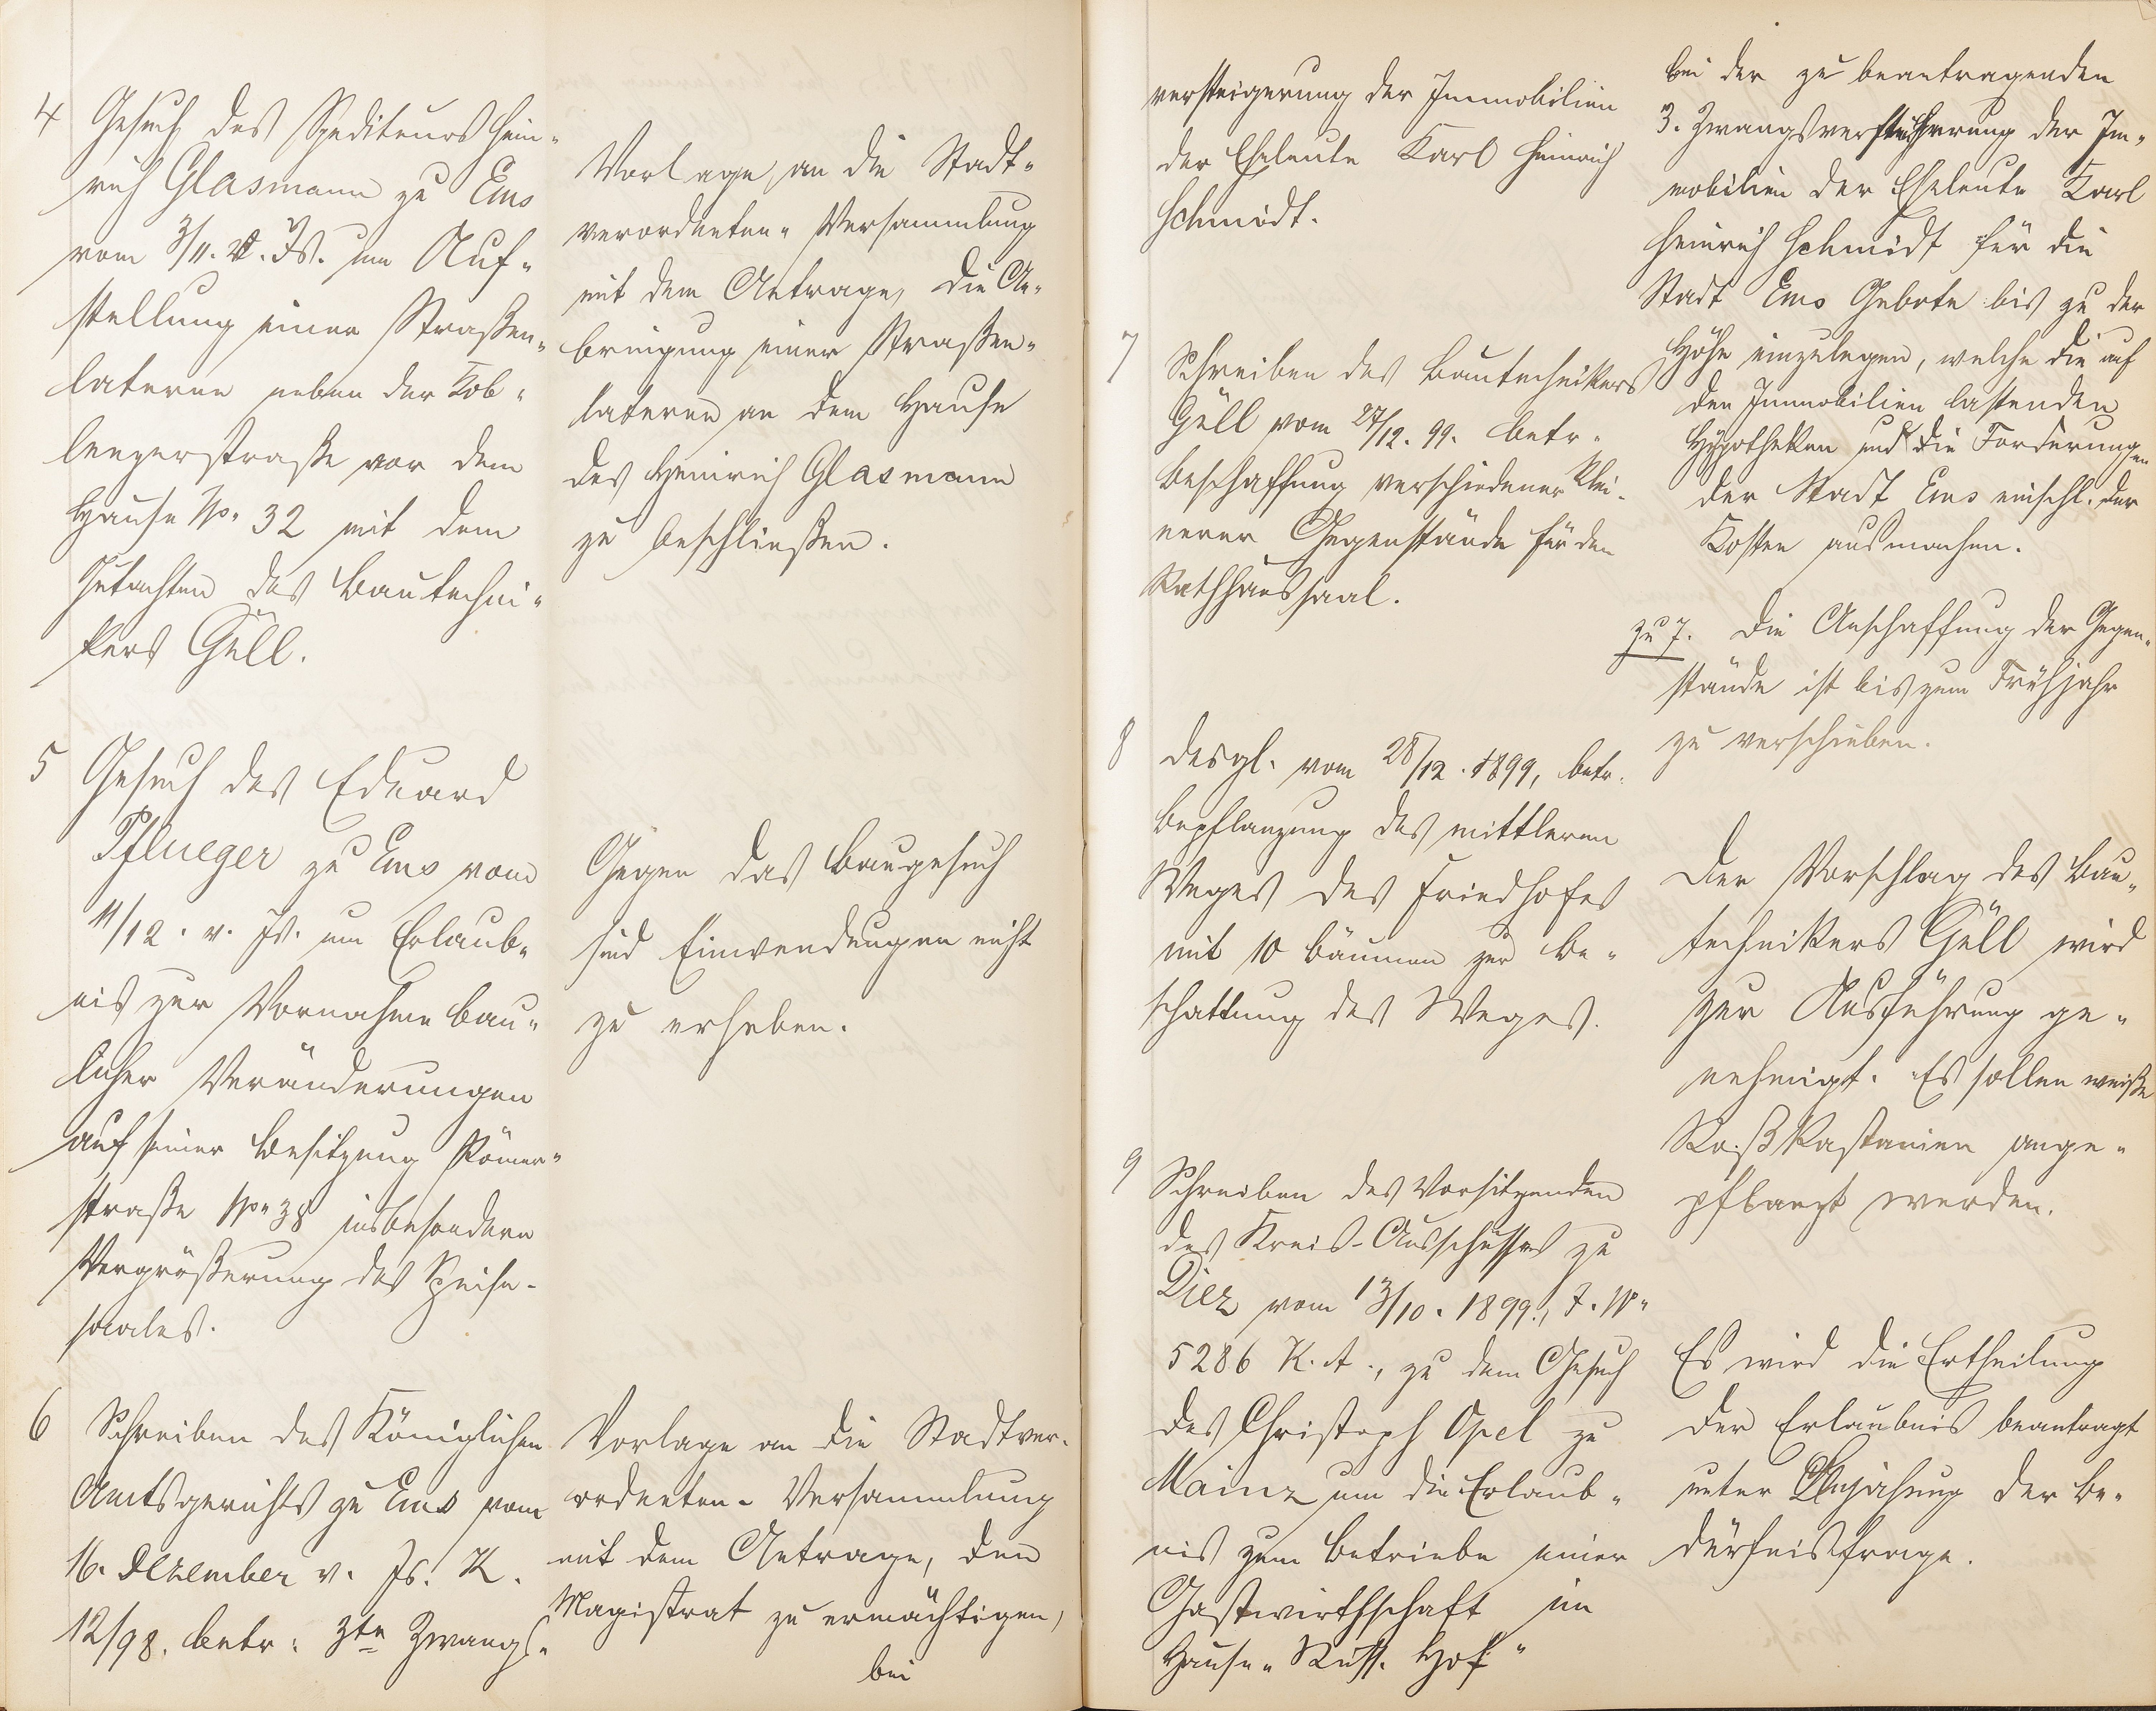 4 Gesuch des Spediteurs Hein-
rich Glasmann zu Ems
vom 3/11. v. Js. um Auf-
stellung einer Straßen-
laterne neben der Kob-
lenzerstraße vor dem
Hause No. 32 mit dem
Gutachten des Bautechni-
kers Güll.
Vorlage an die Stadt-
verordneten-Versammlung
mit dem Antrage, die An-
bringung einer Straßen-
laterne an dem Hause
des Heinrich Glasmann
zu beschließen.
5 Gesuch des Eduard
Pflueger zu Ems vom
11/12. v. Js. um Erlaub-
nis zur Vornahme bau-
licher Veränderungen
auf seiner Besitzung Römer-
straße No. 38 insbesondere
Vergrößerung des Speise-
saales.
Gegen das Baugesuch
sind Einwendungen nicht
zu erheben.
6 Schreiben des Königlichen
Amtsgerichts zu Ems vom
16. Dezember v. Js. K.
12/98. betr. 3te Zwangs-
Vorlage an die Stadtver-
ordneten-Versammlung
mit dem Antrage, den
Magistrat zu ermächtigen,
bei
versteigerung der Immobilien
der Eheleute Karl Heinrich
Schmidt.
bei der zu beantragenden
3. Zwangsversteigerung der Im-
mobilien der Eheleute Karl
Heinrich Schmidt für die
Stadt Ems Gebote bis zu der
Höhe einzulegen, welche die auf
den Immobilien lastenden
Hypotheken und die Forderungen
der Stadt Ems einschl. der
Kosten ausmachen.
7 Schreiben des Bautechnikers
Güll vom 27/12. 99. betr.
Beschaffung verschiedener klei-
nerer Gegenstände für den
Rathhaussaal.
zu 7. Die Anschaffung der Gegen-
stände ist bis zum Frühjahr
zu verschieben.
8 Desgl. vom 28/12. 1899, betr.
Bepflanzung des mittleren
Weges des Friedhofes
mit 10 Bäumen zur Be-
schattung des Weges.
Der Vorschlag des Bau-
technikers Güll wird
zur Ausführung ge-
nehmigt. Es sollen weiße
Roßkastanien ange-
pflanzt werden.
9 Schreiben des Vorsitzenden
des Kreis-Ausschusses zu
Diez vom 13/10. 1899, J. No.
5286 K. A., zu dem Gesuch
des Christoph Opel zu
Mainz um die Erlaub-
nis zum Betriebe einer
Gastwirthschaft im
Hause "Russ. Hof"
Es wird die Ertheilung
der Erlaubnis beantragt
unter Bejahung der Be-
dürfnisfrage.